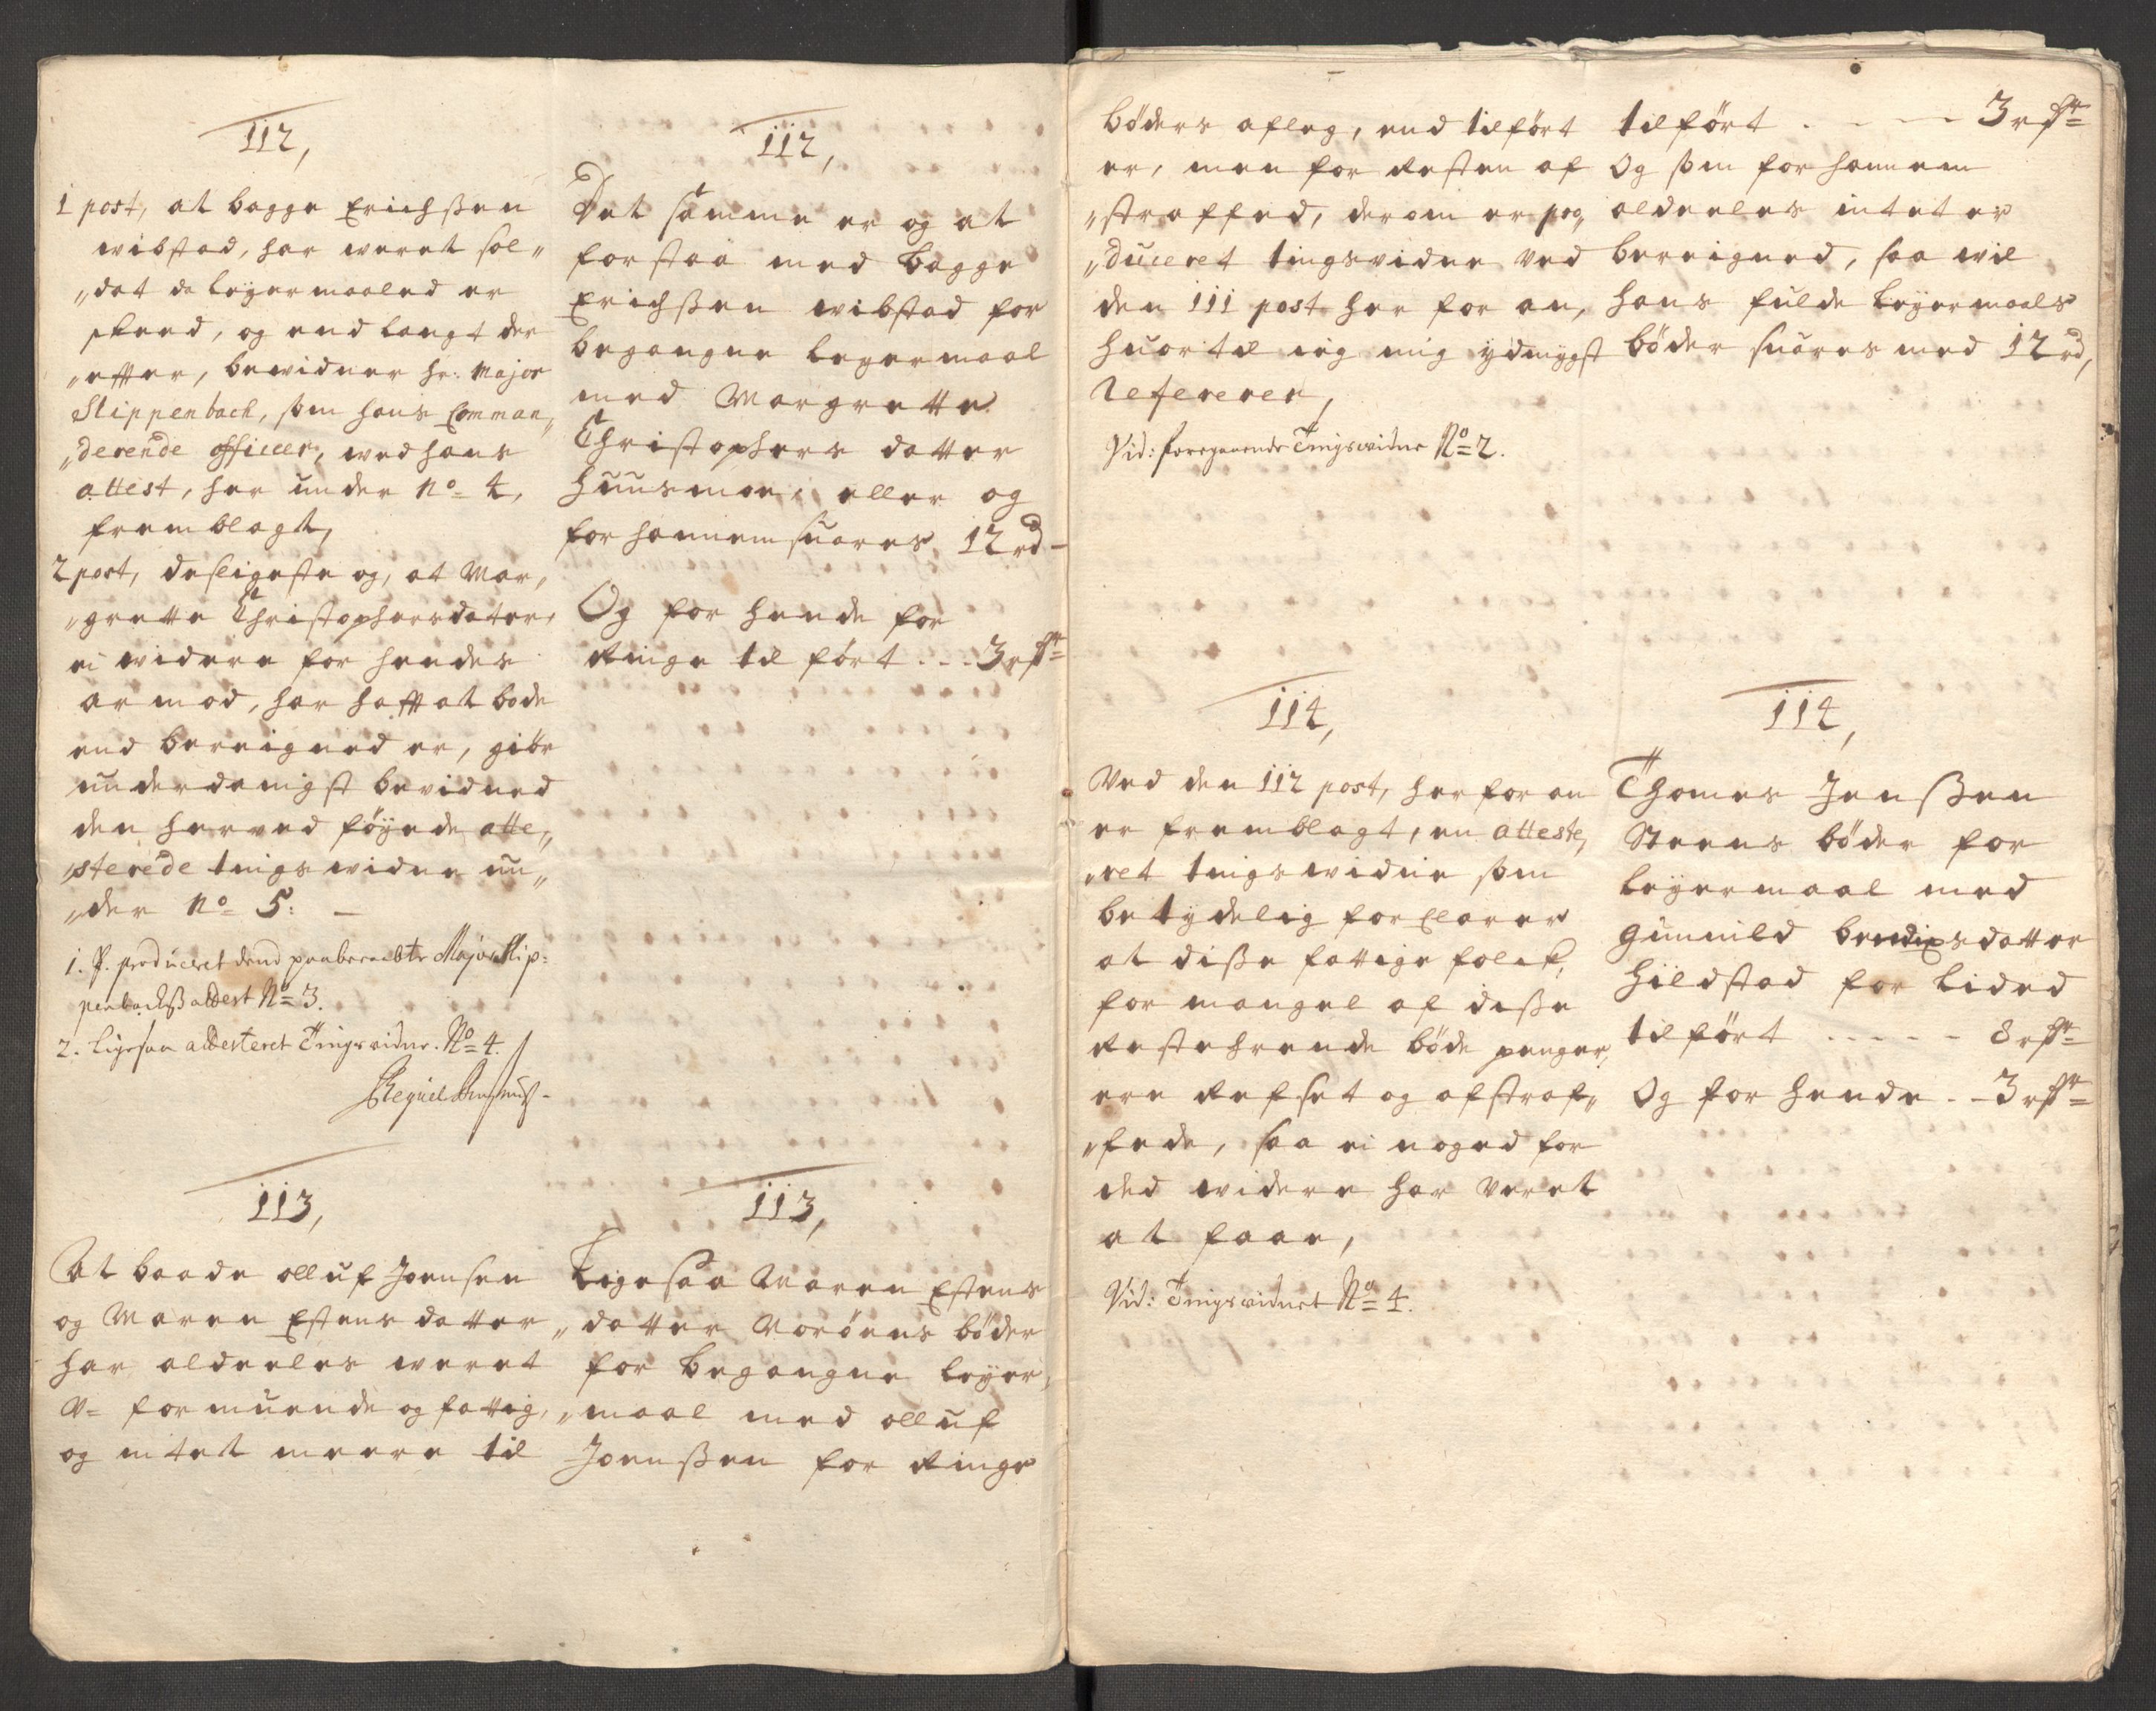 112,
1 post, at bagge Erichßen
wibstad, har weret sol„
„dat da leyermaaled er
skeed, og end langt der
„effter, bewidner hr: Major
Slippenbach, som hans Comman„
„derende officer, wed hans
attest, her under No= 4,
fremblagt,
2 post, desligeste og, at Mar„
„grette Christophersdatter,
ei widere for hendes
armod, har hafft at bøde
end bereigned er, giör
underdanigst bevidned
den herved föyede atte„
„sterede tings widne un„
„der No= 5: –
1. P. produceret dend paaberaabte Major Slip:
penbachß attest No= 3.
2. Ligesaa attesteret Tingsvidne. No= 4.
113,
At baade olluf Joensen
og Maren Estens datter
har aldeeles weret
V= formuende og fattig,
og intet meere til
112,
Det samme er og at
forstaa med bagge
Erichßen wibstad for
begangne leyermaal
med Margrette
Christophers datter
Huusmoe, eller og
for hannem suares 12 rd –
Og for hende for
Ringe til fört ... 3 rdr
113,
Ligesaa Maren Estens
„datter Moröens böder
for begangne leyer„
„maal med olluf
Joenßen for Ringe
böders aflag, end tilfört
er, men for Resten af
„straffed, derom er pro„
„duceret tingsvidne ved
den 111 post her for an,
huortil ieg mig ydmygst
Refererer,
Vid: foregaaende Tingsvidne No= 2.
114,
Ved den 112 post, her for an
er fremblagt, en atteste„
„ret tingswidne som
betydelig forClarer
at diße fattige folck,
for mangel af diße
Resterende böde penger,
ere Refset og afstraf„
„fede, saa ei noged for
ded widere har veret
at faae,
Vid: Tingsvidnet No= 4.
tilfört . - - - 3 rdr
Og som for hannem
aldeeles intet er
bereigned, saa wil
hans fulde leyermaals
böder suares med 12 rd,
114,
Thomes Jenßen
Steens böder for
leyermaal med
Gunnild bendixsdatter
hildstad for lided
tilfört - - - - - 8 rdr
Og for hende - - 3 rdr